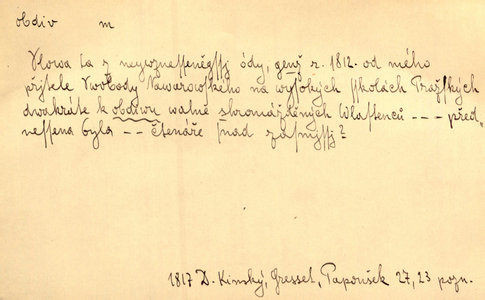 obdiv m
Slowa ta z neywzneſſeněgſſj ódy, genž r. 1812. od mého
přjtele Swobody Nawarowského na wyſokých ſſkolách Pražſkých
dwakráte k obdiwu walně shromážděných Wlaſtenců --- před„
neſſena byla -- čtenáře ſnad zaſmyſſj?
1817 D. Kinský, Gresset, Papoušek 27, 23 pozn.